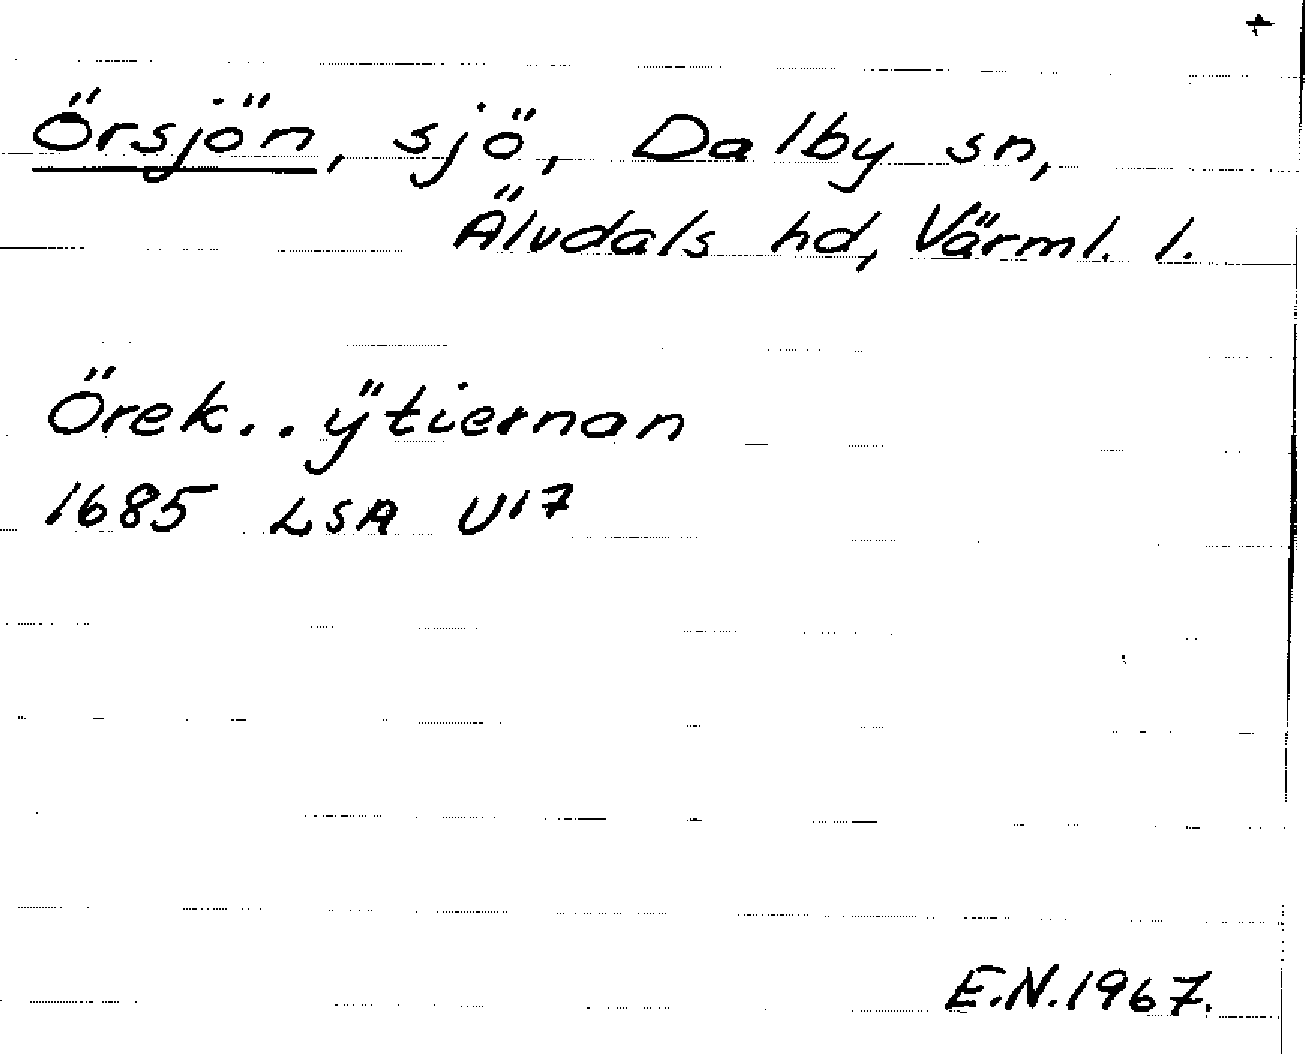 Örsjön, sjö, Dalby sn,
Älvdals hd, Värml. l.
Örek..ÿtiernan
1685 LSA U17
E.N.1967.